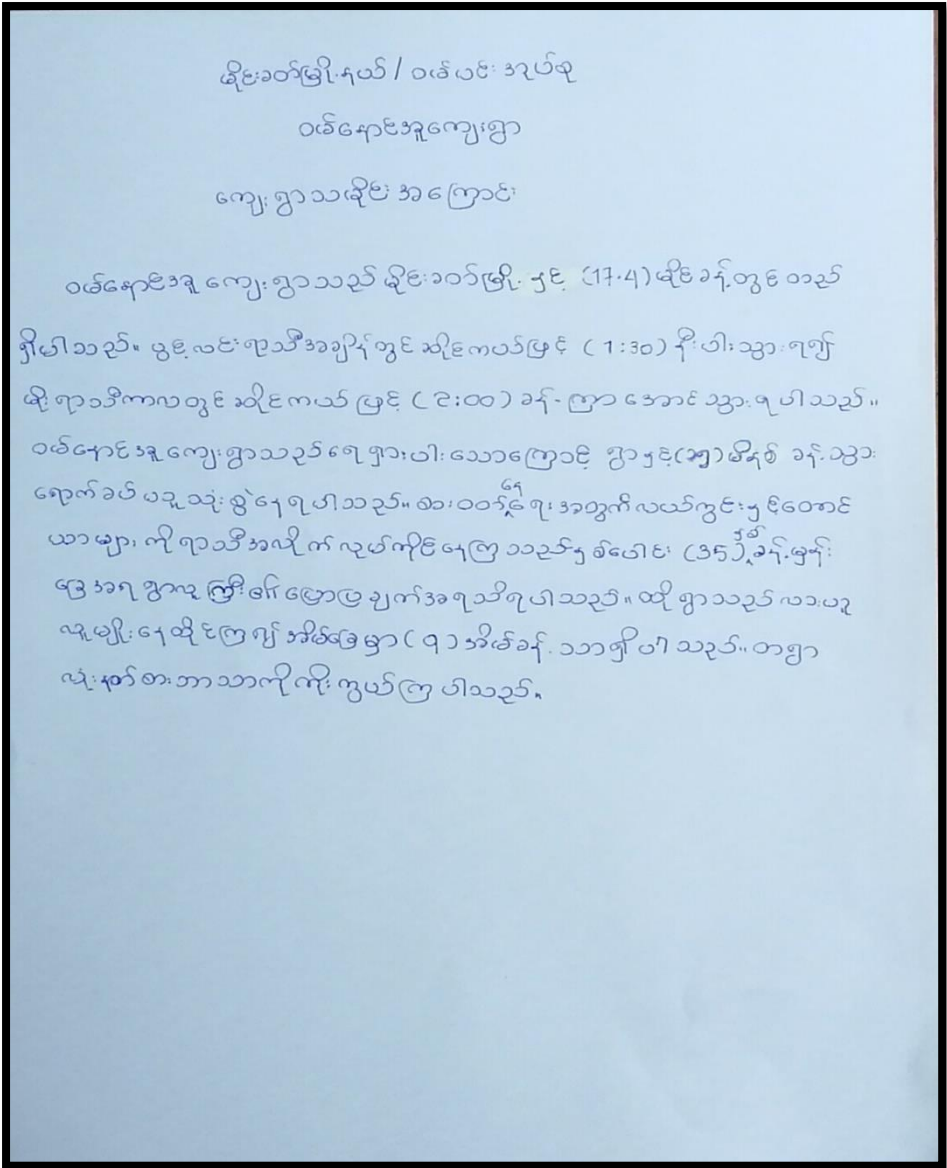 မိုင်းခတ်မြို့နယ် / ဝမ်ပင်းအုပ်စု
ဝမ်နောင်အူကျေးရွာ
ကျေးရွာသမိုင်းအကြောင်း
ဝမ်နောင်အူကျေးရွာသည် မိုင်းခတ်မြို့နှင့် (17.4) မိုင်ခန့်တွင် တည်
ရှိပါသည်။ ပွင့်လင်းရာသီအချိန်တွင် ဆိုင်ကယ်ဖြင့် (1:30) နီးပါးသွားရ၍
မိုးရာသီကာလတွင် ဆိုင်ကယ်ဖြင့် (2:00) ခန့် ကြာအောင်သွားရပါသည်။
ဝမ်နောင်အူကျေးရွာသည် ရေရှားပါးသောကြောင့် ရွာနှင့် (၁၅) မိနစ် ခန့်သွား
ရောက်ခပ်ယူသုံးစွဲနေရပါသည်။ စားဝတ်နေရေးအတွက် လယ်ကွင်းနှင့်တောင်
ယာများကို ရာသီအလိုက် လုပ်ကိုင်နေကြသည်။ နှစ်ပေါင်း (35) နှစ်ခန့်မှန်း
ခြေအရ ရွာလူကြီး၏ပြောပြချက်အရသိရပါသည်။ ထိုရွာသည် လားဟူ
လူမျိုးနေထိုင်ကြ၍ အိမ်ခြေမှာ (၅) အိမ်ခန့် သာရှိပါသည်။ တရွာ
လုံးနတ်စားဘာသာကိုကိုးကွယ်ကြပါသည်။